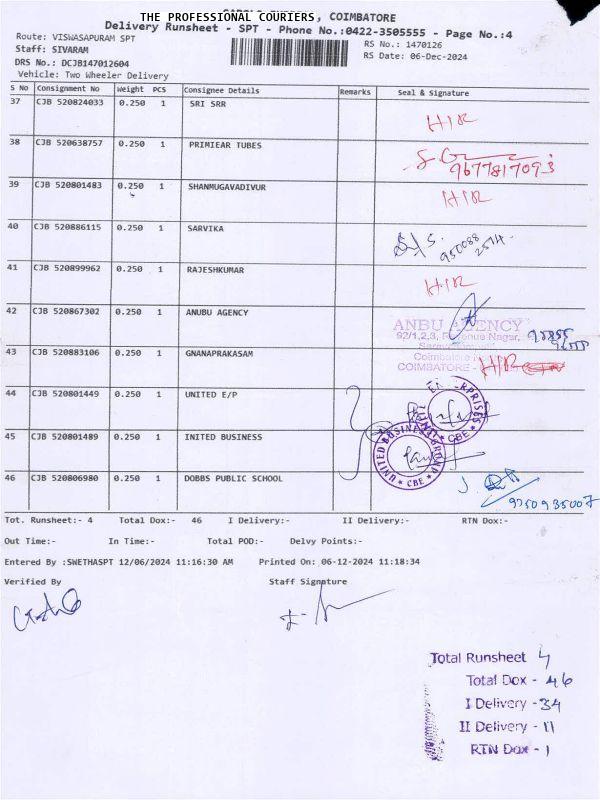 THE PROFESSIONAL COURIERS, COIMBATORE
Delivery Runsheet - SPT - Phone No.:0422-3505555 - Page No.:4
Route: VISWASAPURAM SPT
RS No.: 1470126
Staff: SIVARAM
RS Date: 06-Dec-2024
DRS No.: DCJB147012604
Vehicle: Two Wheeler Delivery
S No Consignment No Weight PCS Consignee Details Remarks Seal & Signature
37 CJB 520824033 0.250 1 SRI SRR HIR
38 CJB 520638757 0.250 1 PRIMIEAR TUBES 9677817093
39 CJB 520801483 0.250 1 SHANMUGAVADIVUR HIR
40 CJB 520886115 0.250 1 SARVIKA 950088
41 CJB 520899962 0.250 1 RAJESHKUMAR HIR
42 CJB 520867302 0.250 1 ANUBU AGENCY
ANBU AGENCY
92/1,2,3, Revenue Nagar,
43 CJB 520883106 0.250 1 GNANAPRAKASAM HIR
COIMBATORE -
44 CJB 520801449 0.250 1 UNITED E/P
45 CJB 520801489 0.250 1 INITED BUSINESS
UNITED BUSINESS CBE
46 CJB 520806980 0.250 1 DOBBS PUBLIC SCHOOL
9750935007
Tot. Runsheet:- 4 Total Dox:- 46 I Delivery:- II Delivery:- RTN Dox:-
Out Time:- In Time:- Total POD:- Delvy Points:-
Entered By :SWETHASPT 12/06/2024 11:16:30 AM Printed On: 06-12-2024 11:18:34
Verified By Staff Signature
Total Runsheet 4
Total Dox - 46
I Delivery - 34
II Delivery - 11
RTN Dox - 1